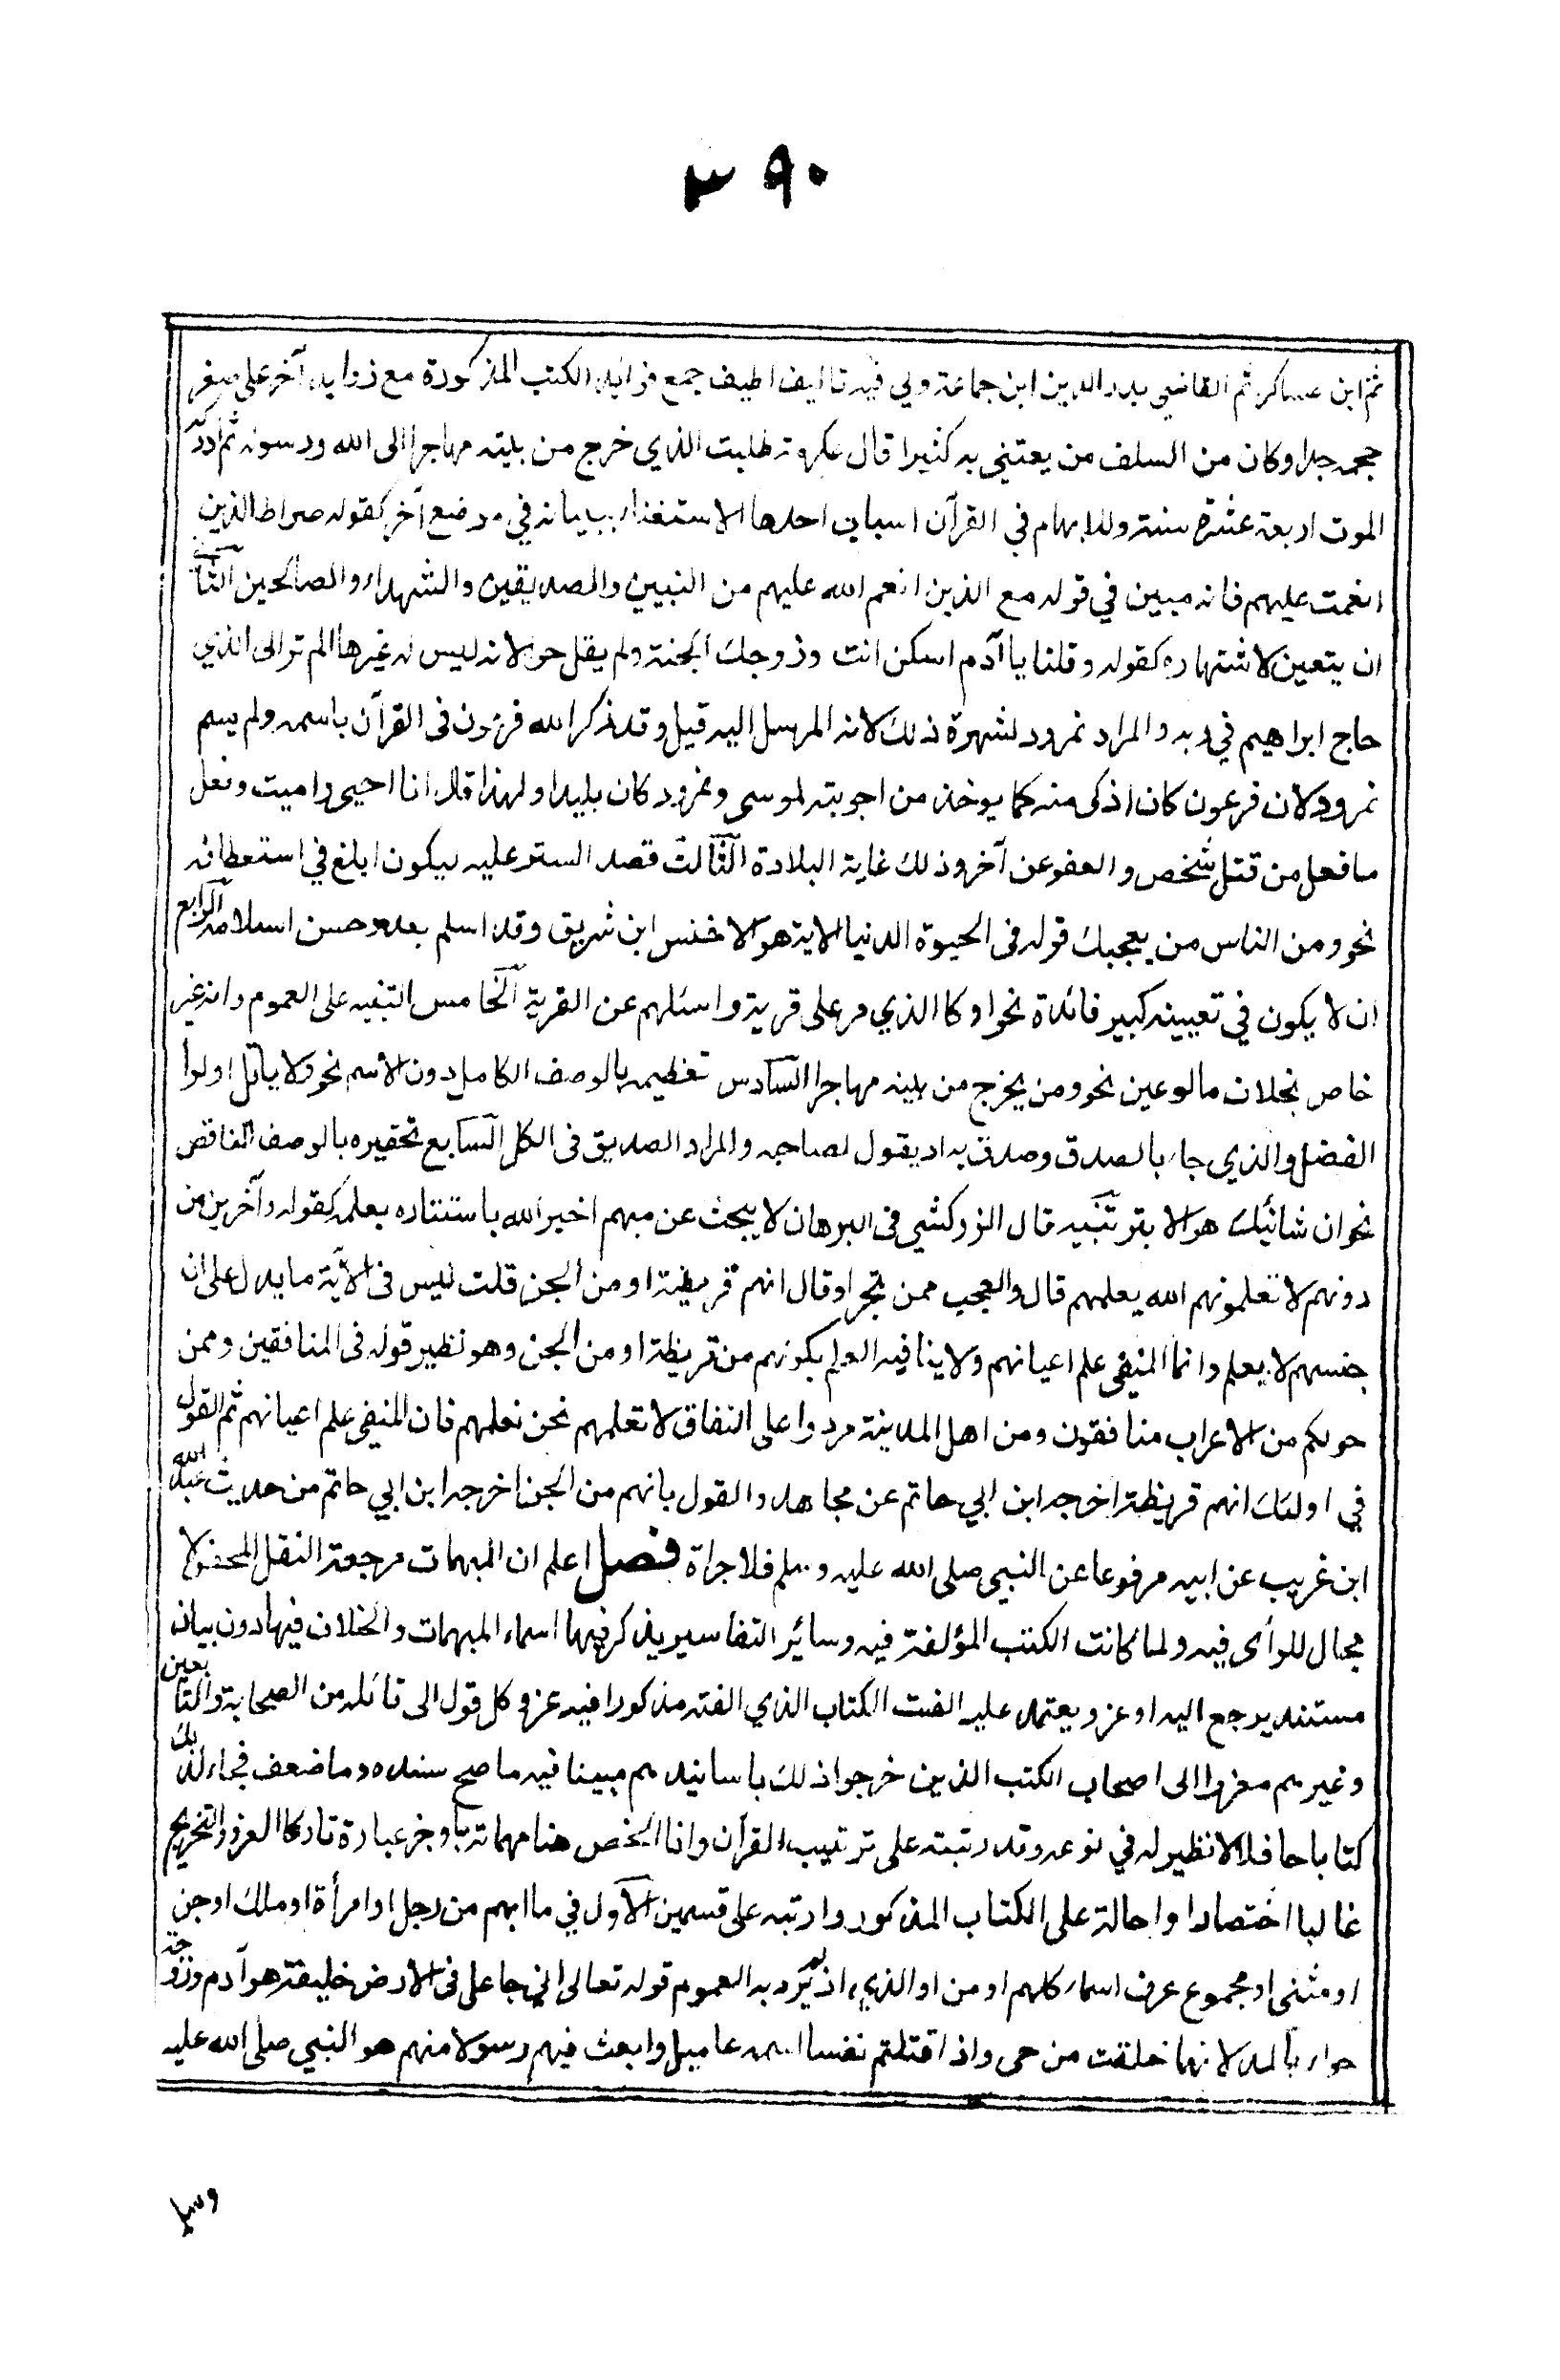 ٣٩٠
ثم ابن عساكر ثم القاضي بدر الدين ابن جماعة ولي فيه تاليف لطيف جمع فوائد الكتب المذكورة مع زوايد آخر على صغر
حجمه جدا وكان من السلف من يعتني به كثيرا قال عكرمة طلبت الذي خرج من بيته مهاجرا الى الله ورسوله ثم ادركه
الموت اربعة عشرة سنة وللابهام في القرآن اسباب احدها الاستغناء ببيانه في موضع آخر كقوله صراط الذين
انعمت عليهم فانه مبين في قوله مع الذين انعم الله عليهم من النبيين والصديقين والشهداء والصالحين الثاني
ان يتعين لاشتهاره كقوله وقلنا يا آدم اسكن انت وزوجك الجنة ولم يقل حوا لانه ليس له غيرها الم تر الى الذي
حاج ابراهيم في ربه والمراد نمرود لشهرة ذلك لانه المرسل اليه قيل وقد ذكر الله فرعون فى القرآن باسمه ولم يسم
نمرود لان فرعون كان اذكى منه كما يوخذ من اجوبته لموسى ونمرود كان بليدا ولهذا قال انا احيى واميت وفعل
ما فعل من قتل شخص والعفو عن آخر وذلك غاية البلادة الثالث قصد الستر عليه ليكون ابلغ في استعطافه
نحو ومن الناس من يعجبك قوله فى الحيوة الدنيا الاية هو الاخنس ابن شريق وقد اسلم بعد وحسن اسلامه الرابع
ان لا يكون في تعيينه كبير فائدة نحو او كالذي مر على قرية واسئلهم عن القرية الخامس التنبيه على العموم وانه غير
خاص بخلاف ما لو عين نحو ومن يخرج من بيته مهاجرا السادس تعظيمه بالوصف الكامل دون الاسم نحو ولا ياتل اولوا
الفضل والذي جاء بالصدق وصدق به اذ يقول لصاحبه والمراد الصديق فى الكل السابع تحقيره بالوصف الناقص
نحو ان شانئك هو الابتر تنبيه قال الزركشي فى البرهان لا يبحث عن مبهم اخبر الله باستئثاره بعلمه كقوله وآخرين من
دونهم لا تعلمونهم الله يعلمهم قال والعجب ممن تجرا وقال انهم قريظة او من الجن قلت ليس فى الآية ما يدل على ان
جنسهم لا يعلم وانما المنفى علم اعيانهم ولا ينافيه العلم بكونهم من قريظة او من الجن وهو نظير قوله فى المنافقين وممن
حولكم من الاعراب منافقون ومن اهل المدينة مردوا على النفاق لا تعلمهم نحن نعلمهم فان المنفى علم اعيانهم ثم القول
في اولئك انهم قريظة اخرجه ابن ابي حاتم عن مجاهد والقول بانهم من الجن اخرجه ابن ابي حاتم من حديث عبد الله
ابن غريب عن ابيه مرفوعا عن النبي صلى الله عليه وسلم فلا جراة فصل اعلم ان المبهمات مرجعة النقل المحض ولا
مجال للرأى فيه ولما كانت الكتب المؤلفة فيه وسائر التفاسير يذكر فيها اسماء المبهمات والخلاف فيها دون بيان
مستند يرجع اليه او عزو يعتمد عليه الفت الكتاب الذي الفته مذكورا فيه عزو كل قول الى قائله من الصحابة والتابعين
وغيرهم معزوا الى اصحاب الكتب الذين خرجوا ذلك باسانيدهم مبينا فيه ما صح سنده وما ضعف فجاء لذلك
كتابا حافلا لا نظير له في نوعه وقد رتبته على ترتيب القرآن وانا الخص هنا مهماته باوجز عبارة تاركا العزو والتخريج
غالبا اختصارا واحالة على الكتاب المذكور وارتبه على قسمين الاول في ما ابهم من رجل او امرأة او ملك او جن
او مثنى او مجموع عرف اسماء كلهم او من او الذي اذ لم يرد به العموم قوله تعالى اني جاعل فى الارض خليفة هو آدم وزوجته
حواء بالمد لانها خلقت من حى واذ اقتلتم نفسا اسمه عاميل وابعث فيهم رسولا منهم هو النبي صلى الله عليه
وسلم